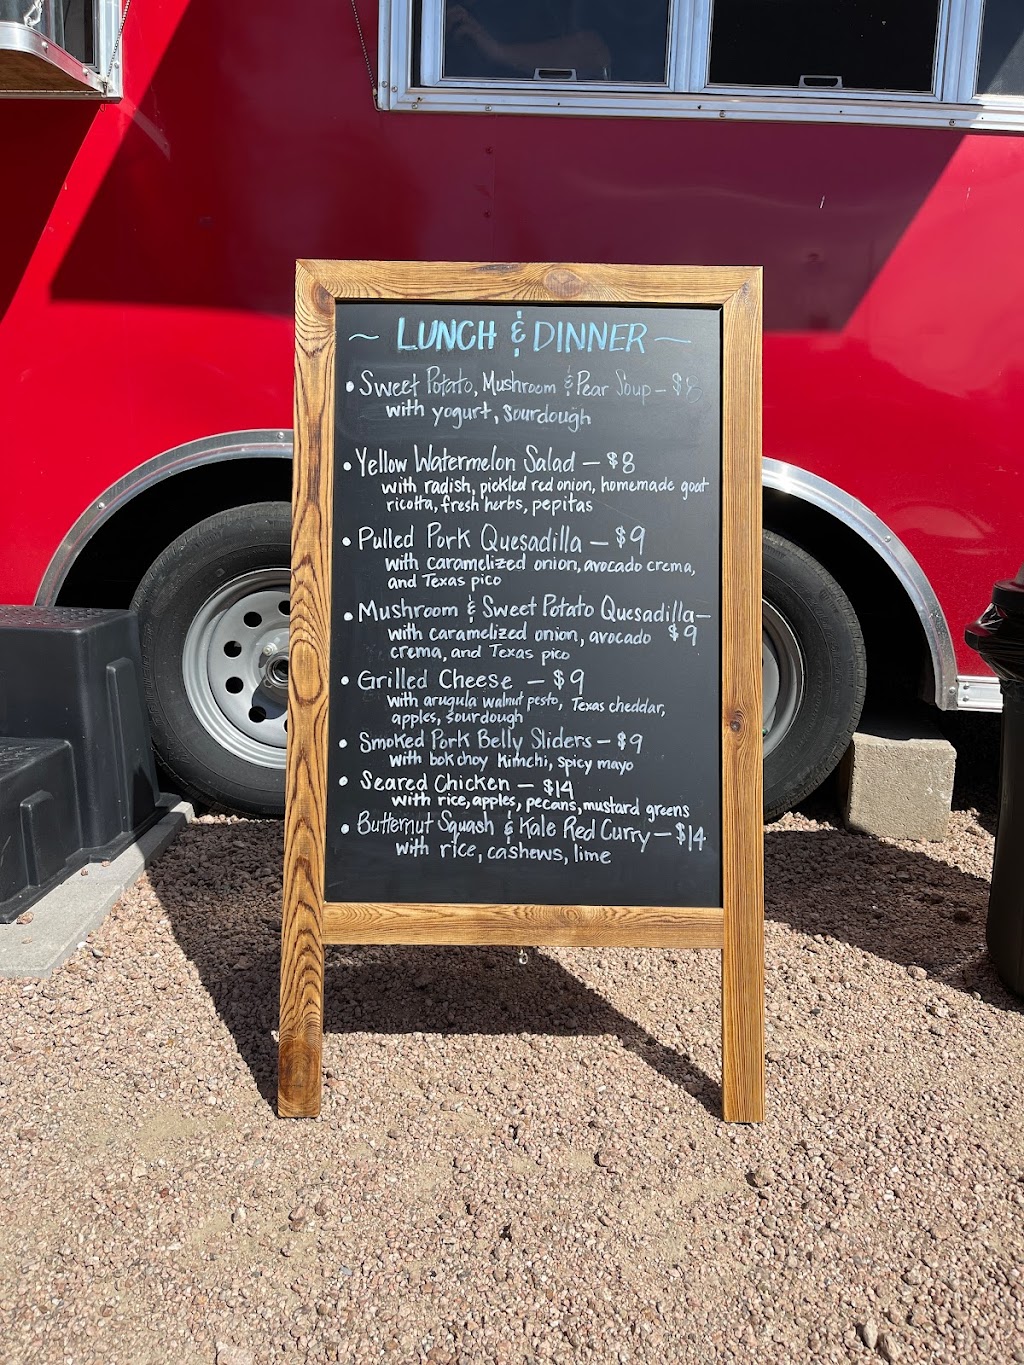 ~ LUNCH & DINNER ~
• Sweet Potato, Mushroom & Pear Soup - $8
with yogurt, sourdough
• Yellow Watermelon Salad - $8
with radish, pickled red onion, homemade goat
ricotta, fresh herbs, pepitas
• Pulled Pork Quesadilla - $9
with caramelized onion, avocado crema,
and Texas pico
• Mushroom & Sweet Potato Quesadilla -
with caramelized onion, avocado $9
crema, and Texas pico
• Grilled Cheese - $9
with arugula walnut pesto, Texas cheddar,
apples, sourdough
• Smoked Pork Belly Sliders - $9
with bok choy kimchi, spicy mayo
• Seared Chicken - $14
with rice, apples, pecans, mustard greens
• Butternut Squash & Kale Red Curry - $14
with rice, cashews, lime